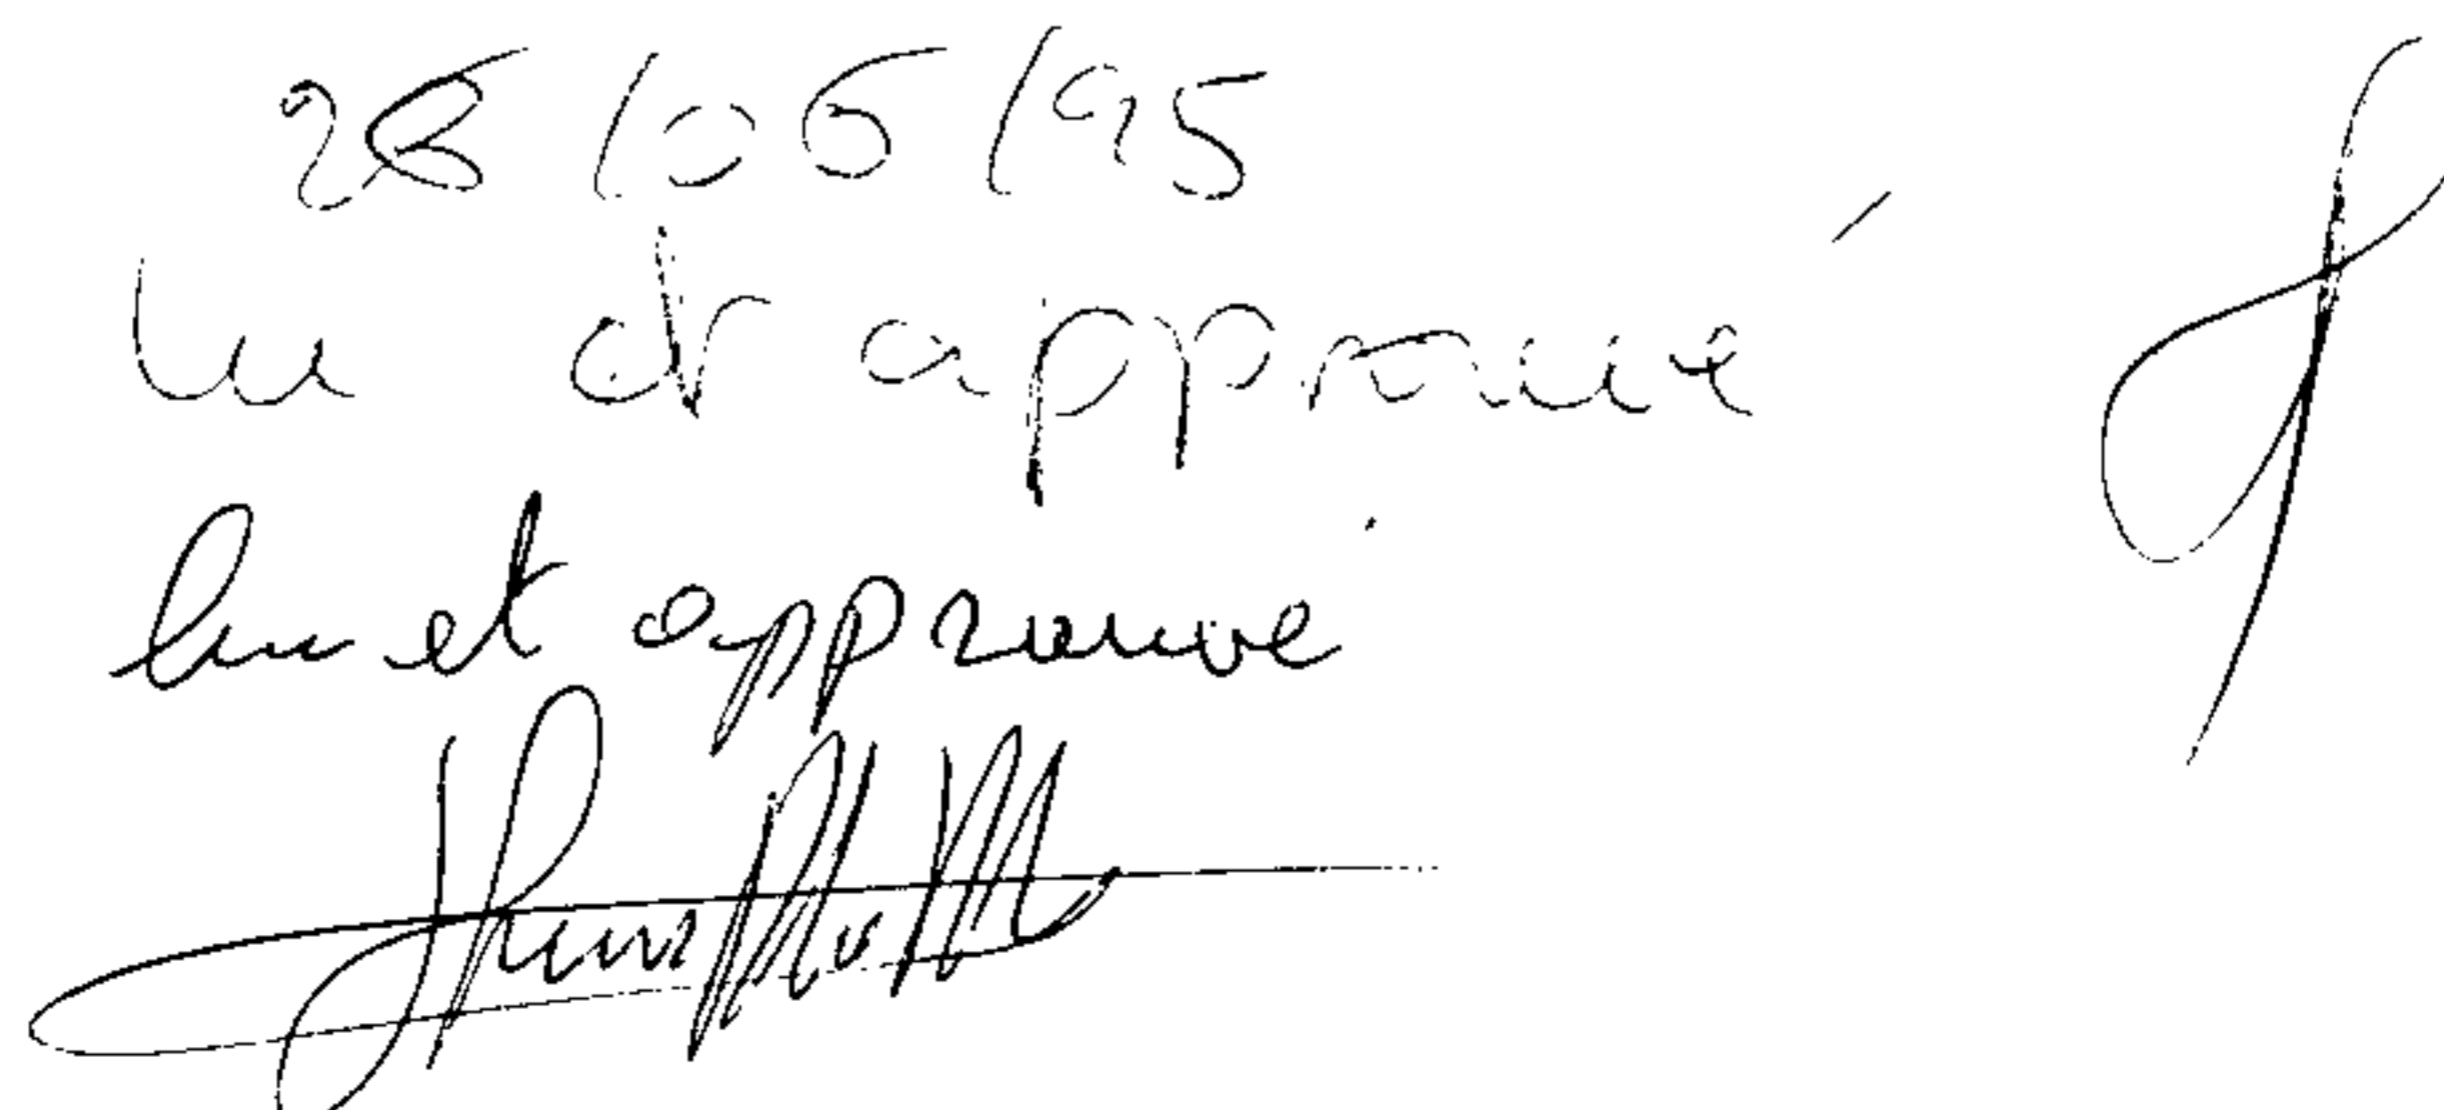 28/06/95
lu et approuvé
lu et approuvé